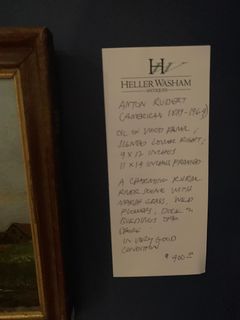 HW
HELLER WASHAM
ANTIQUES
ANTON
(AMERICAN
OIL ON WOOD PANEL,
SIGNED LOWER RIGHT,
9 X 12 INCHES
11 X 14 INCHES FRAMED
A CHARMING RURAL
RIVER SCENE WITH
MARSH GRASS, WILD
FLOWERS, DOCK &
BUILDINGS
IN VERY GOOD
CONDITION
$ 900